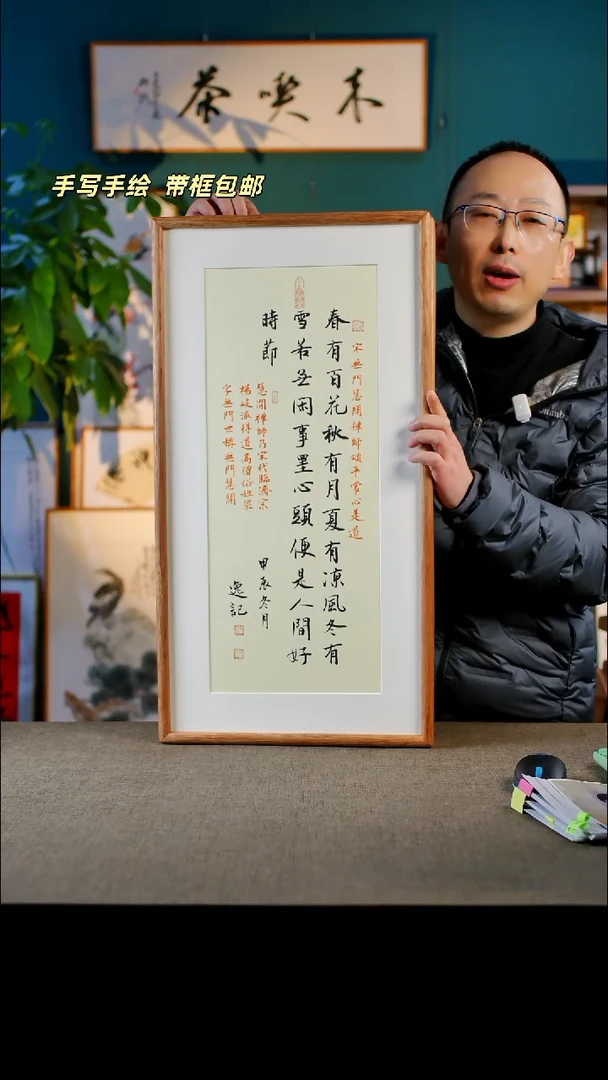 茶喫未
手写手绘 带框包邮
宋無門慧開禅師頌平常心是道
春有百花秋有月夏有凉風冬有
雪若无闲事里心頭便是人間好
時節
慧開禅師乃宋代臨濟宗
楊岐派得道高僧俗姓梁
字無門世稱無門慧開
甲辰冬月
逸記
Columbia